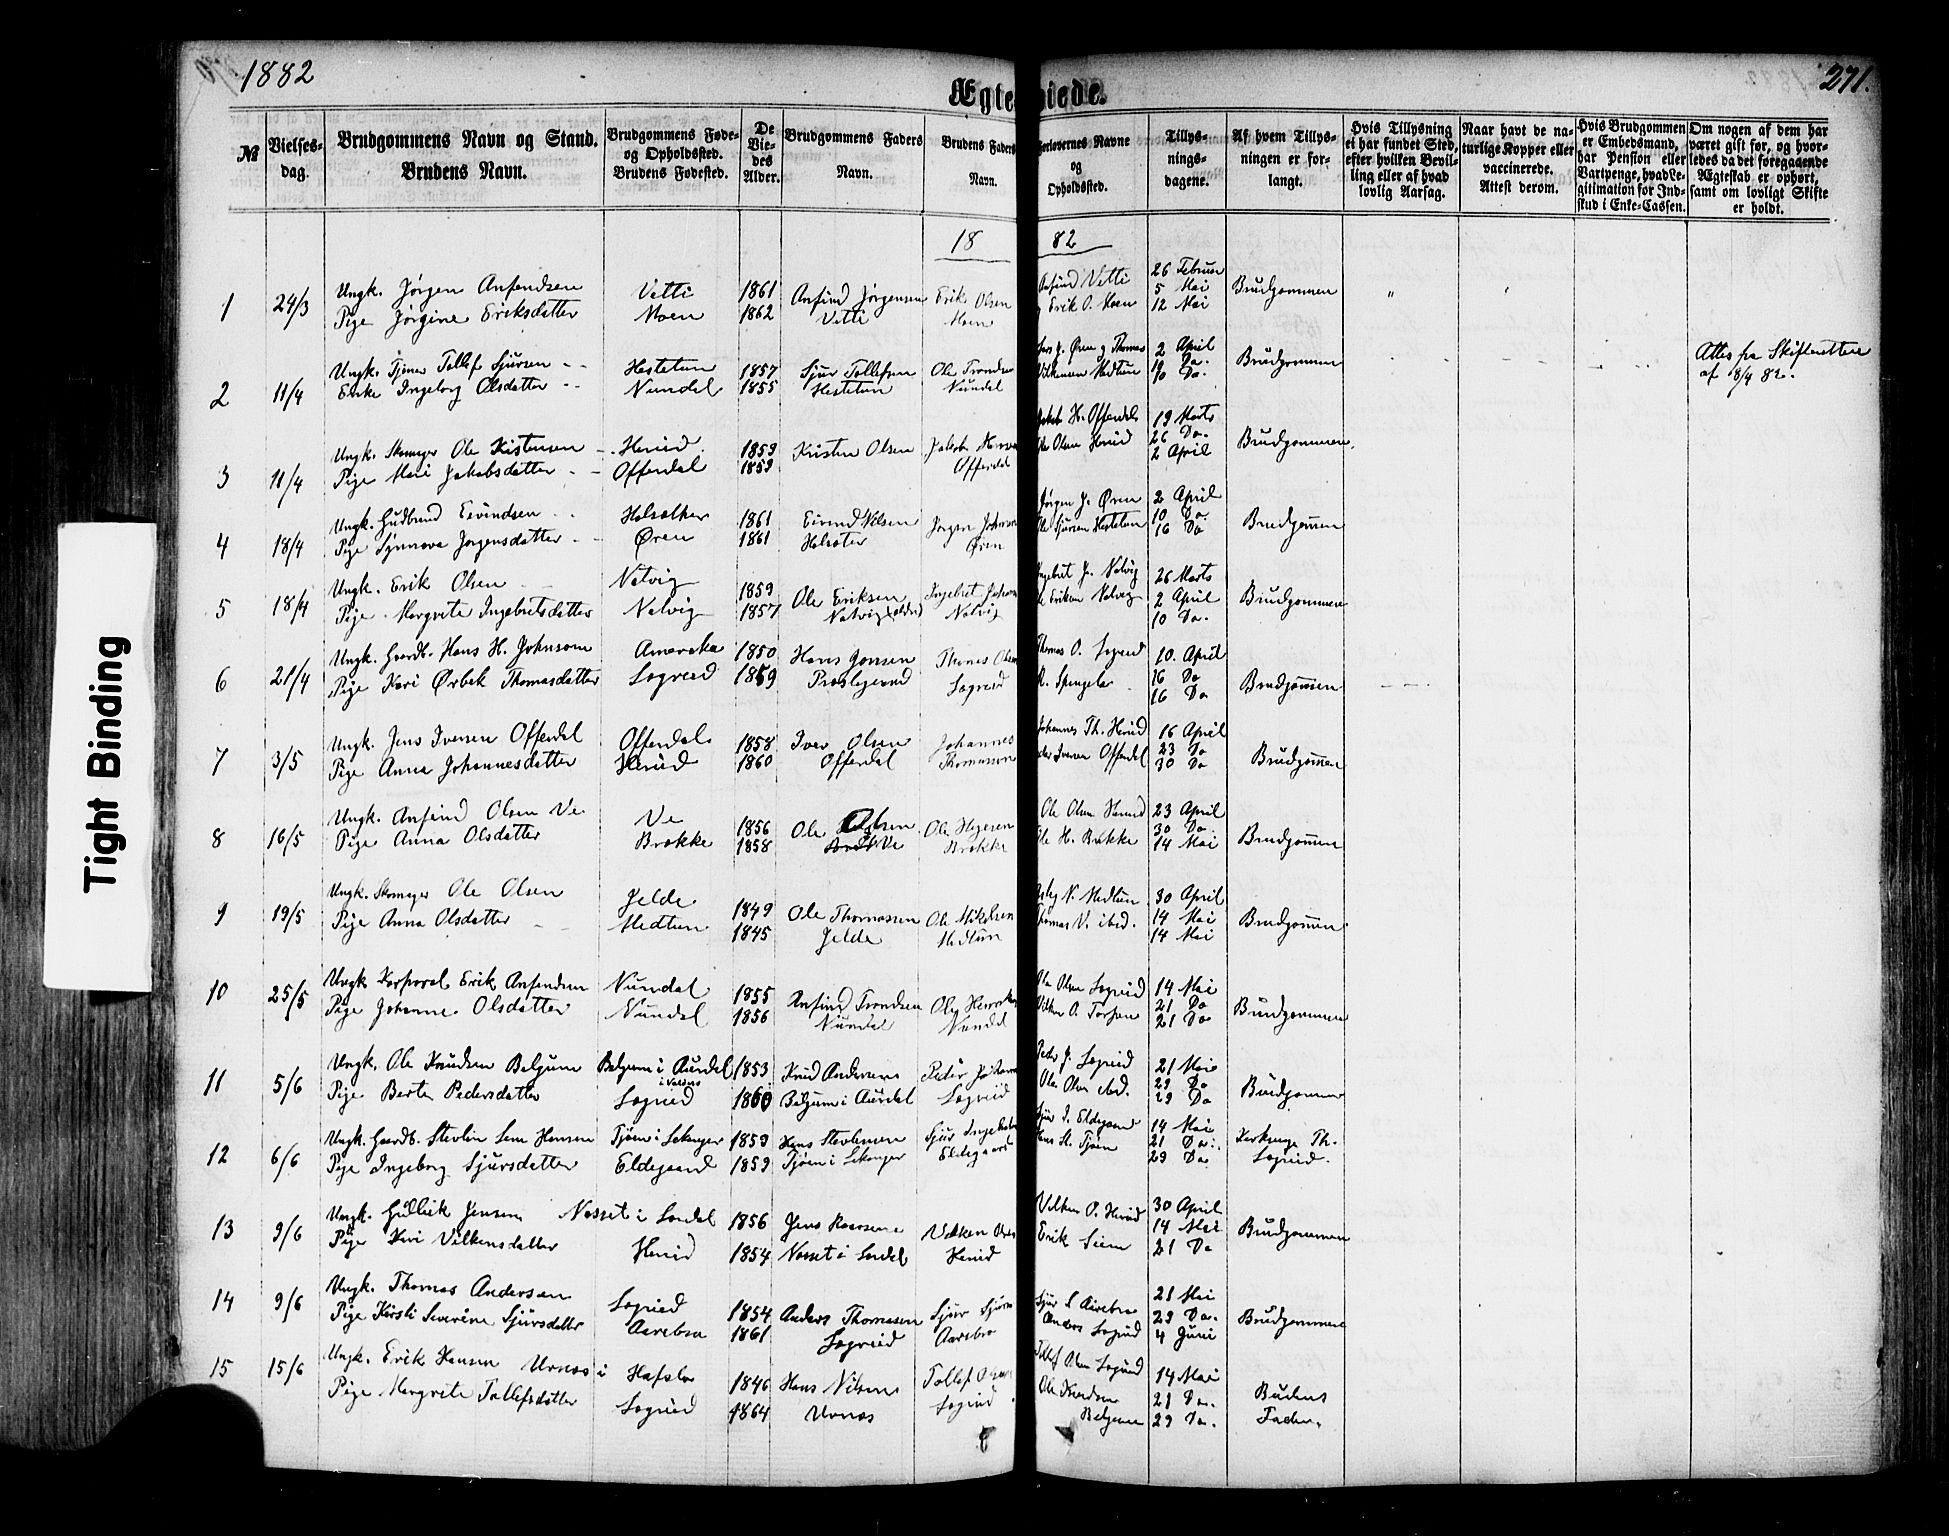 1882
271.
Ægteviede.
Tight Binding
№
Vielses-
dag.
Brudgommens Navn og Stand.
Brudens Navn.
Brudgommens Føde-
og Opholdssted.
Brudens Fødested.
De
Vie-
des
Alder.
Brudgommens Faders
Navn.
Brudens Faders
Navn.
Forlovernes Navne
og
Opholdssted.
Tillys-
nings-
dagene.
Af hvem Tillys-
ningen er for-
langt.
Hvis Tillysning
ei har fundet Sted,
efter hvilken Bevil-
ling eller af hvad
lovlig Aarsag.
Naar havt de na-
turlige Kopper eller
vaccinerede.
Attest derom.
Hvis Brudgommen
er Embedsmand,
har Pension eller
Vartpenge, hvad Le-
gitimation for Ind-
skud i Enke-Cassen.
Om nogen af dem har
været gift før, og hvor-
ledes da det foregaaende
Ægteskab er ophørt,
samt om lovligt Skifte
er holdt.
18 82
1 24/3
Ungk. Jørgen Anfendsen
Pige Jørgine Eriksdatter
Vetti
Moen
1861
1862
Anfind Jørgensen
Vetti
Erik Olsen
Moen
Anfind Vetti
Erik O. Moen
26 Februar
5 Mai
12 Mai
Brudgommen
2 11/4
Ungk. Tjener Tollef Sjursen
Enke Ingeborg Olsdatter
Hestetun
Nundal
1857
1855
Sjur Tollefsen
Hestetun
Ole Trondsen
Nundel
Øren og Thomas
Medtun
2 April
10 Do.
Brudgommen
Attes fra Skifteretten
af 18/4 82.
3 11/4
Ungk. Skomager Ole Kistensen
Pige Mari Jakobsdatter
Heruid
Offerdal
1859
1859
Kristen Olsen
Jakob
Offerdal
H. Offerdal
Ole Olsen Heruid
19 Marts
26 Do.
2 April
Brudgommen.
4 18/4
Ungk. Gudbrand Eivindsen
Pige Synnova Jørgensdatter
Holsæther
Øren
1861
1861
Eivind Nilsen
Holsæter
Jørgen Johnsen
Øren
Jørgen J. Øren
Ole Sjursen Hestetun
2 April
10 Do.
16 Do
Brudgommen
5 18/4
Ungk. Erik Olsen
Pige Margrete Ingebretsdatter
Natvig
Natvig
1859
1857
Ole Eriksen
Natvig (ældre)
Ingebret Johan
Natvig
Ingebret J. Natvig
Ole Eriksen Natvig
26 Marts
2 April
10 Do.
Brudgommen
6 21/4
Ungk. Gaardb. Hans H. Johnson
Pige Kari Ørbek Thomasdatter
Amerika
Sogneid
1850
1859
Hans Jonsen
Thomas Olsen
Sogneid
Thomas O. Sogneid
10. April
16 Do
16 Do
Brudgommen
7 3/5
Ungk. Jens Iversen Offerdal
Pige Anna Johannesdatter
Offerdal
Heruid
1858
1860
Iver Olsen
Offerdal
Johannes
Thomassen
Johannes Th. Heruid
Iversen Offerdal
16 April
23 Do
30 Do
Brudgommen
8 16/5
Ungk. Anfind Olsen Ve
Pige Anna Olsdatter
Ve
Brække
1856
1858
Ole Olsen
Ve
Ole
Brække
Ole Olsen
Ole H. Brække
23 April
30 Do.
14 Mai
Brudgommen
9 19/5
Ungk. Skomager Ole Olsen
Pige Anna Olsdatter
Jelde
Medtun
1849
1845
Ole Thomassen
Jelde
Ole Mikelsen
Medtun
N. Medtun
Thomas V. ibid.
30 April
14 Mai
14 Mai
Brudgommen
10 25/5
Ungk. Korporal Erik Anfendsen
Pige Johanne Olsdatter
Nundal
Nundal
1855
1856
Anfind Trondsen
Nundal
Ole
Nundal
Ole Olsen Sogneid
14 Mai
21 Do
21 Do
Brudgommen
11 5/6
Ungk. Ole Knudsen Belgum
Pige Berta Pedersdatter
Belgum i Aurdal
i Valdres
Sogneid
1853
1860
Knud Andersen
Belgum i Aurdal
Peder Johann
Sogneid
Peder J. Sogneid
Ole Olsen ibid.
21 Mai
29 Do
29 Do
Brudgommen
12 6/6
Ungk. Gaardb. Stevlin Sem Hansen
Pige Ingeborg Sjursdatter
Tjøen i Lekanger
Eldegaard
1859
1859
Hans Stevlensen
Tjøen i Lekanger
Sjur Ingebr
Eldegaard
Sjur I. Eldegaard
Hans St. Tjøen
14 Mai
21 Do.
29 Do.
Kirksanger Th.
Sogneid.
13 9/6
Ungk. Gullick Jensen
Pige Kari Vilkensdatter
Næsset i Lærdal
Heruid
1856
1854
Jens
Næsset i Lærdal
Vilken
Heruid
Vilken O. Heruid
Erik Seim
30 April
14 Mai
21 Do
Brudgommen
14 9/6
Ungk. Thomas Andersen
Pige Kirsti Severine Sjursdatter
Sogneid
Aarebro
1854
1861
Anders Thomasen
Sogneid
Sjur Sjurs
Aarebro
Sjur S Aarebro
Anders Sogneid
21 Mai
29 Do.
4 Juni
Brudgommen
15 15/6
Ungk. Erik Hansen
Pige Margrete Tollefsdatter
Urnæs i Hafslo
Sogneid
1846
1864
Hans Nilsen
Urnæs
Tollef Olsen
Sogneid
Tollef Olsen Sogneid
Ole Knudsen
Belgum
14 Mai
21 Do.
29 Do.
Brudens
Fader.